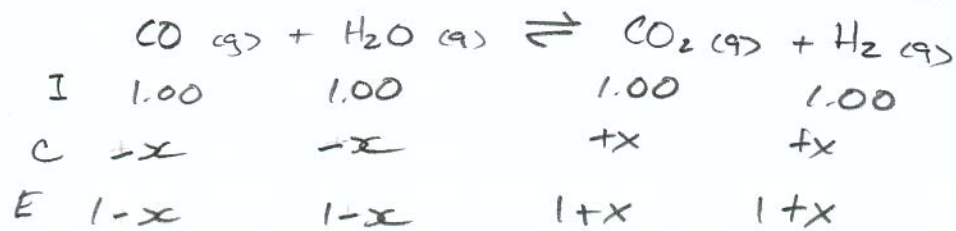 CO (g) + H₂O (g) ⇌ CO₂ (g) + H₂ (g)
I 1.00 1.00 1.00 1.00
C -x -x +x +x
E 1-x 1-x 1+x 1+x